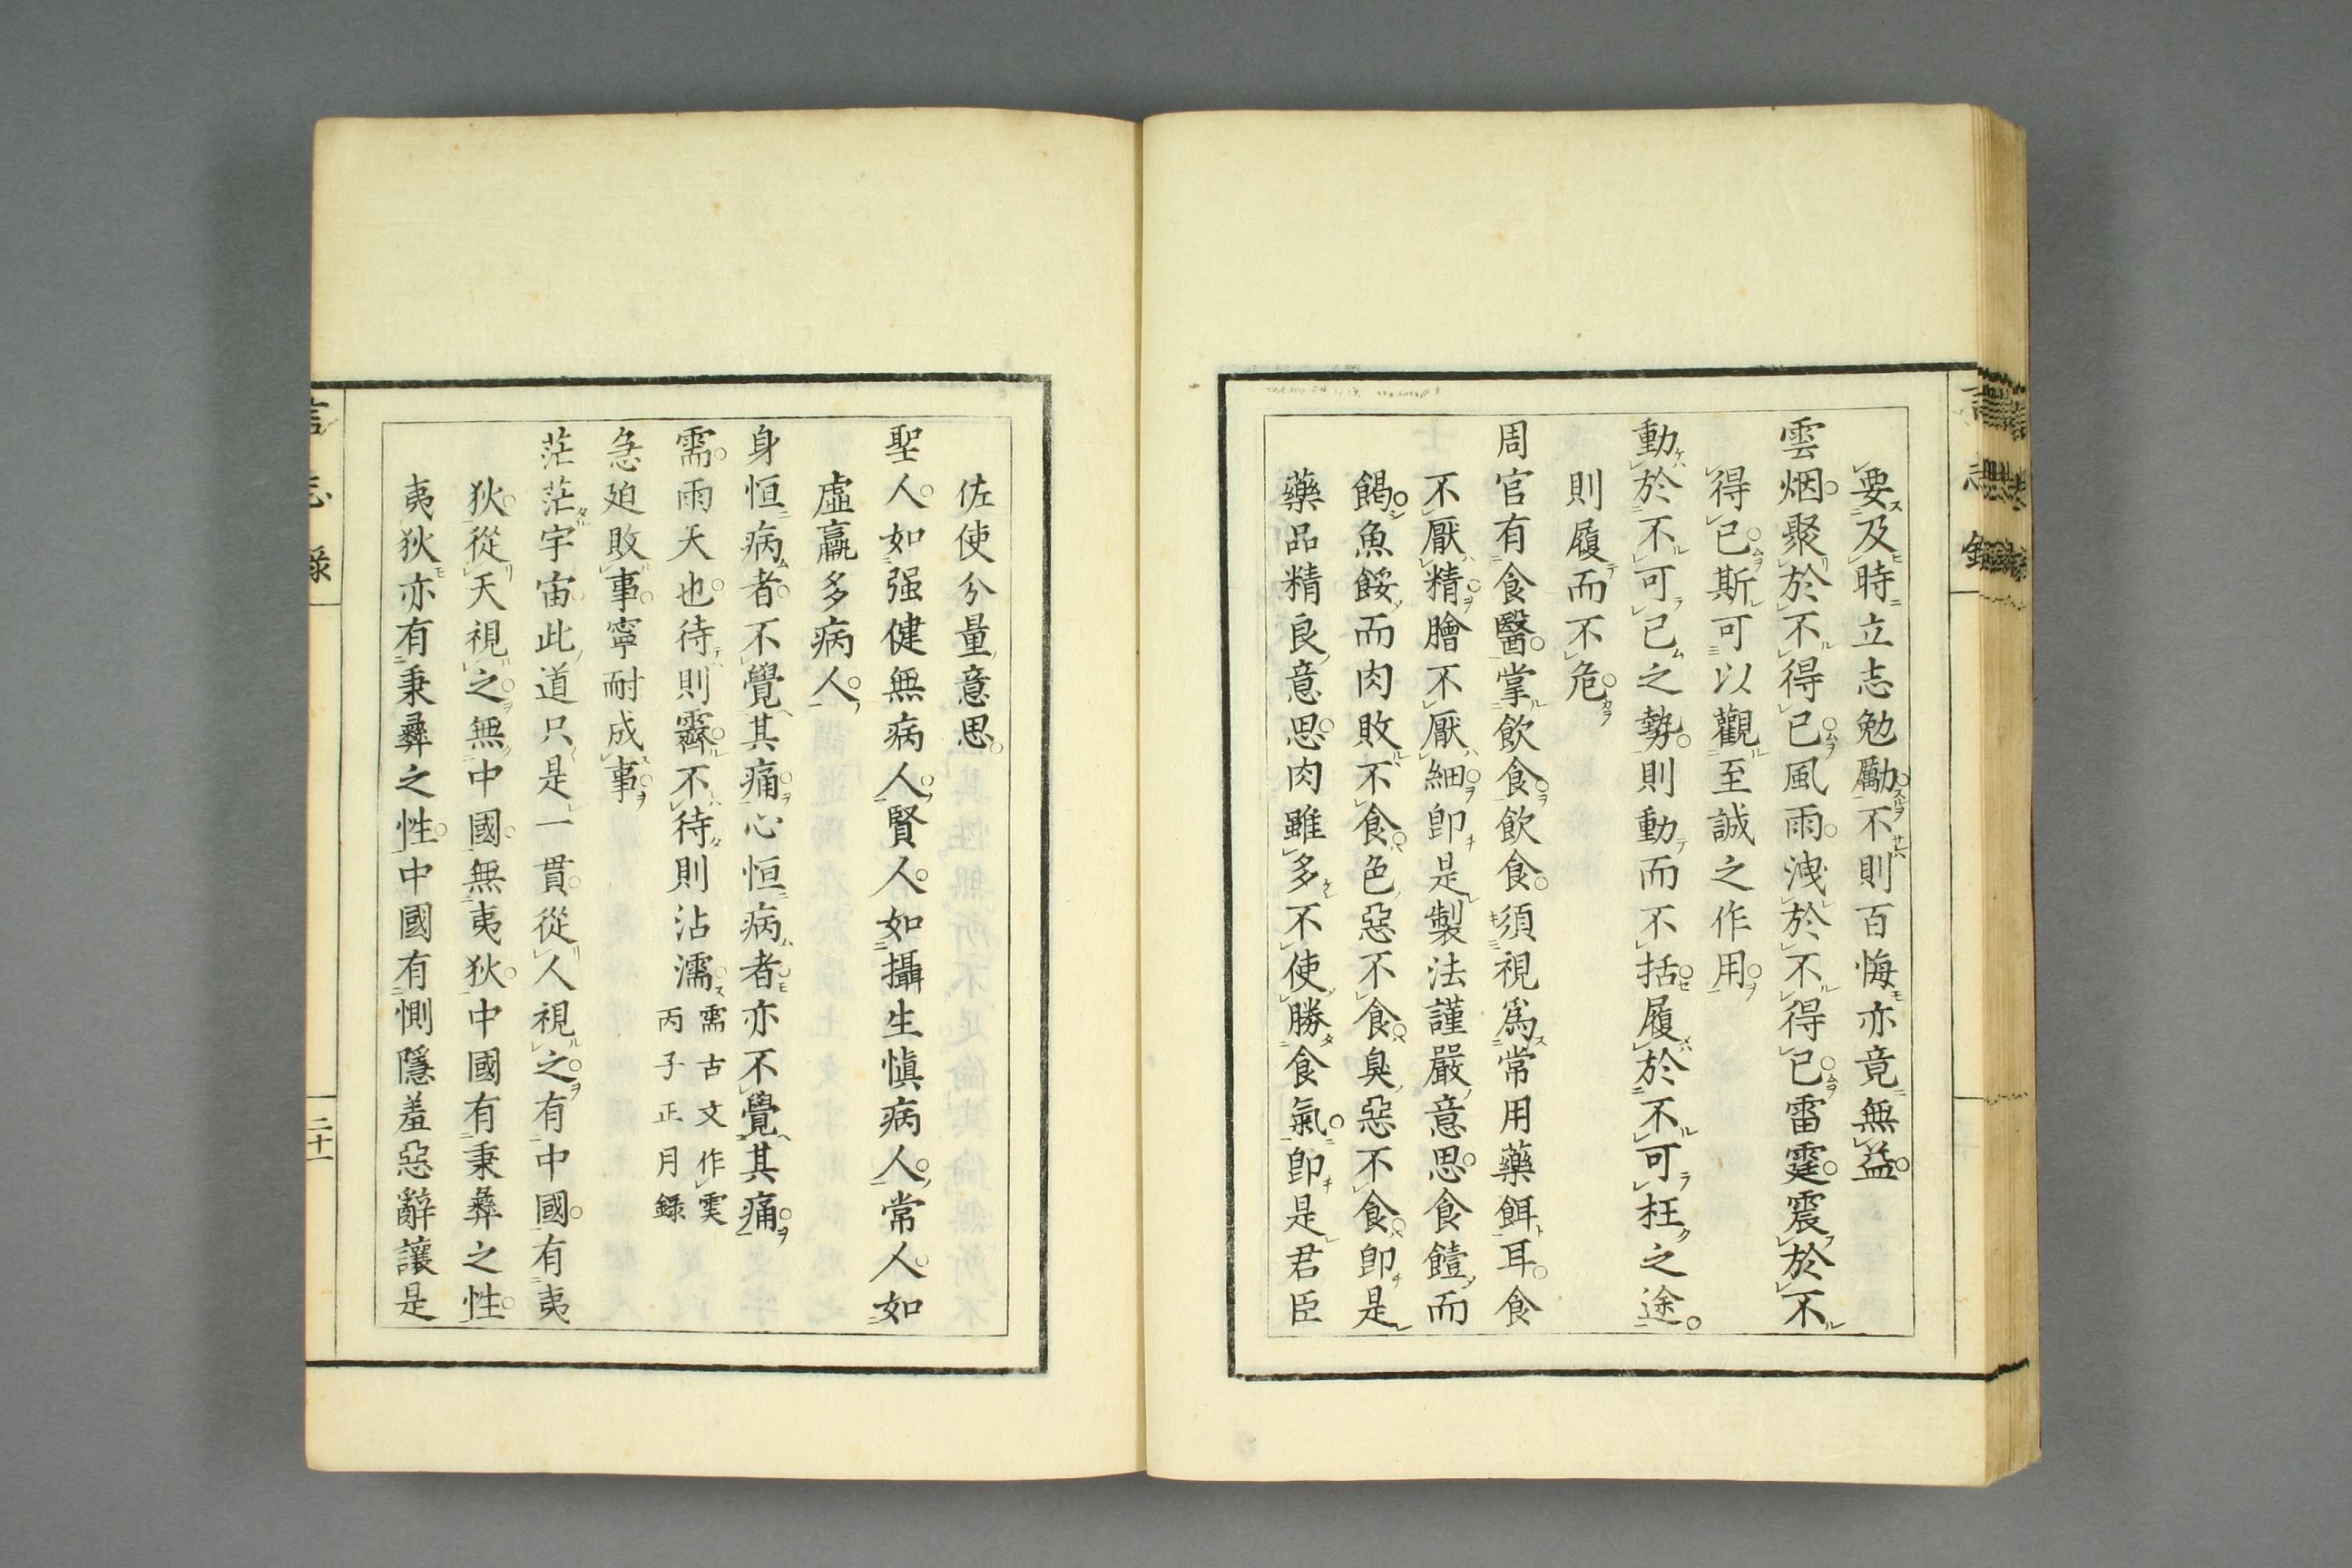 要及時立志勉勵不則百悔亦竟無益
雲烟聚於不得已風雨洩於不得已雷霆震於不
得已斯可以觀至誠之作用
動於不可已之勢則動而不括履於不可枉之途
則履而不危
周官有食醫掌飲食飲食須視爲常用藥餌耳食
不厭精膾不厭細卽是製法謹嚴意思食饐而
餲魚餒而肉敗不食色惡不食臭惡不食卽是
藥品精良意思肉雖多不使勝食氣卽是君臣
佐使分量意思
聖人如强健無病人賢人如攝生愼病人常人如
虛羸多病人
身恒病者不覺其痛心恒病者亦不覺其痛
需雨天也待則霽不待則沾濡需古文作䨙丙子正月録
急廹敗事寧耐成事
茫茫宇宙此道只是一貫從人視之有中國有夷
狄從天視之無中國無夷狄中國有秉彝之性
夷狄亦有秉彝之性中國有惻隱羞惡辭讓是
言志録
二十一